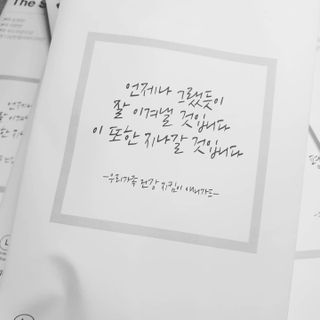 The S
언제나 그랬듯이
잘 이겨낼 것입니다
이 또한 지나갈 것입니다
-우리가족 건강 지킴이 애니가드-